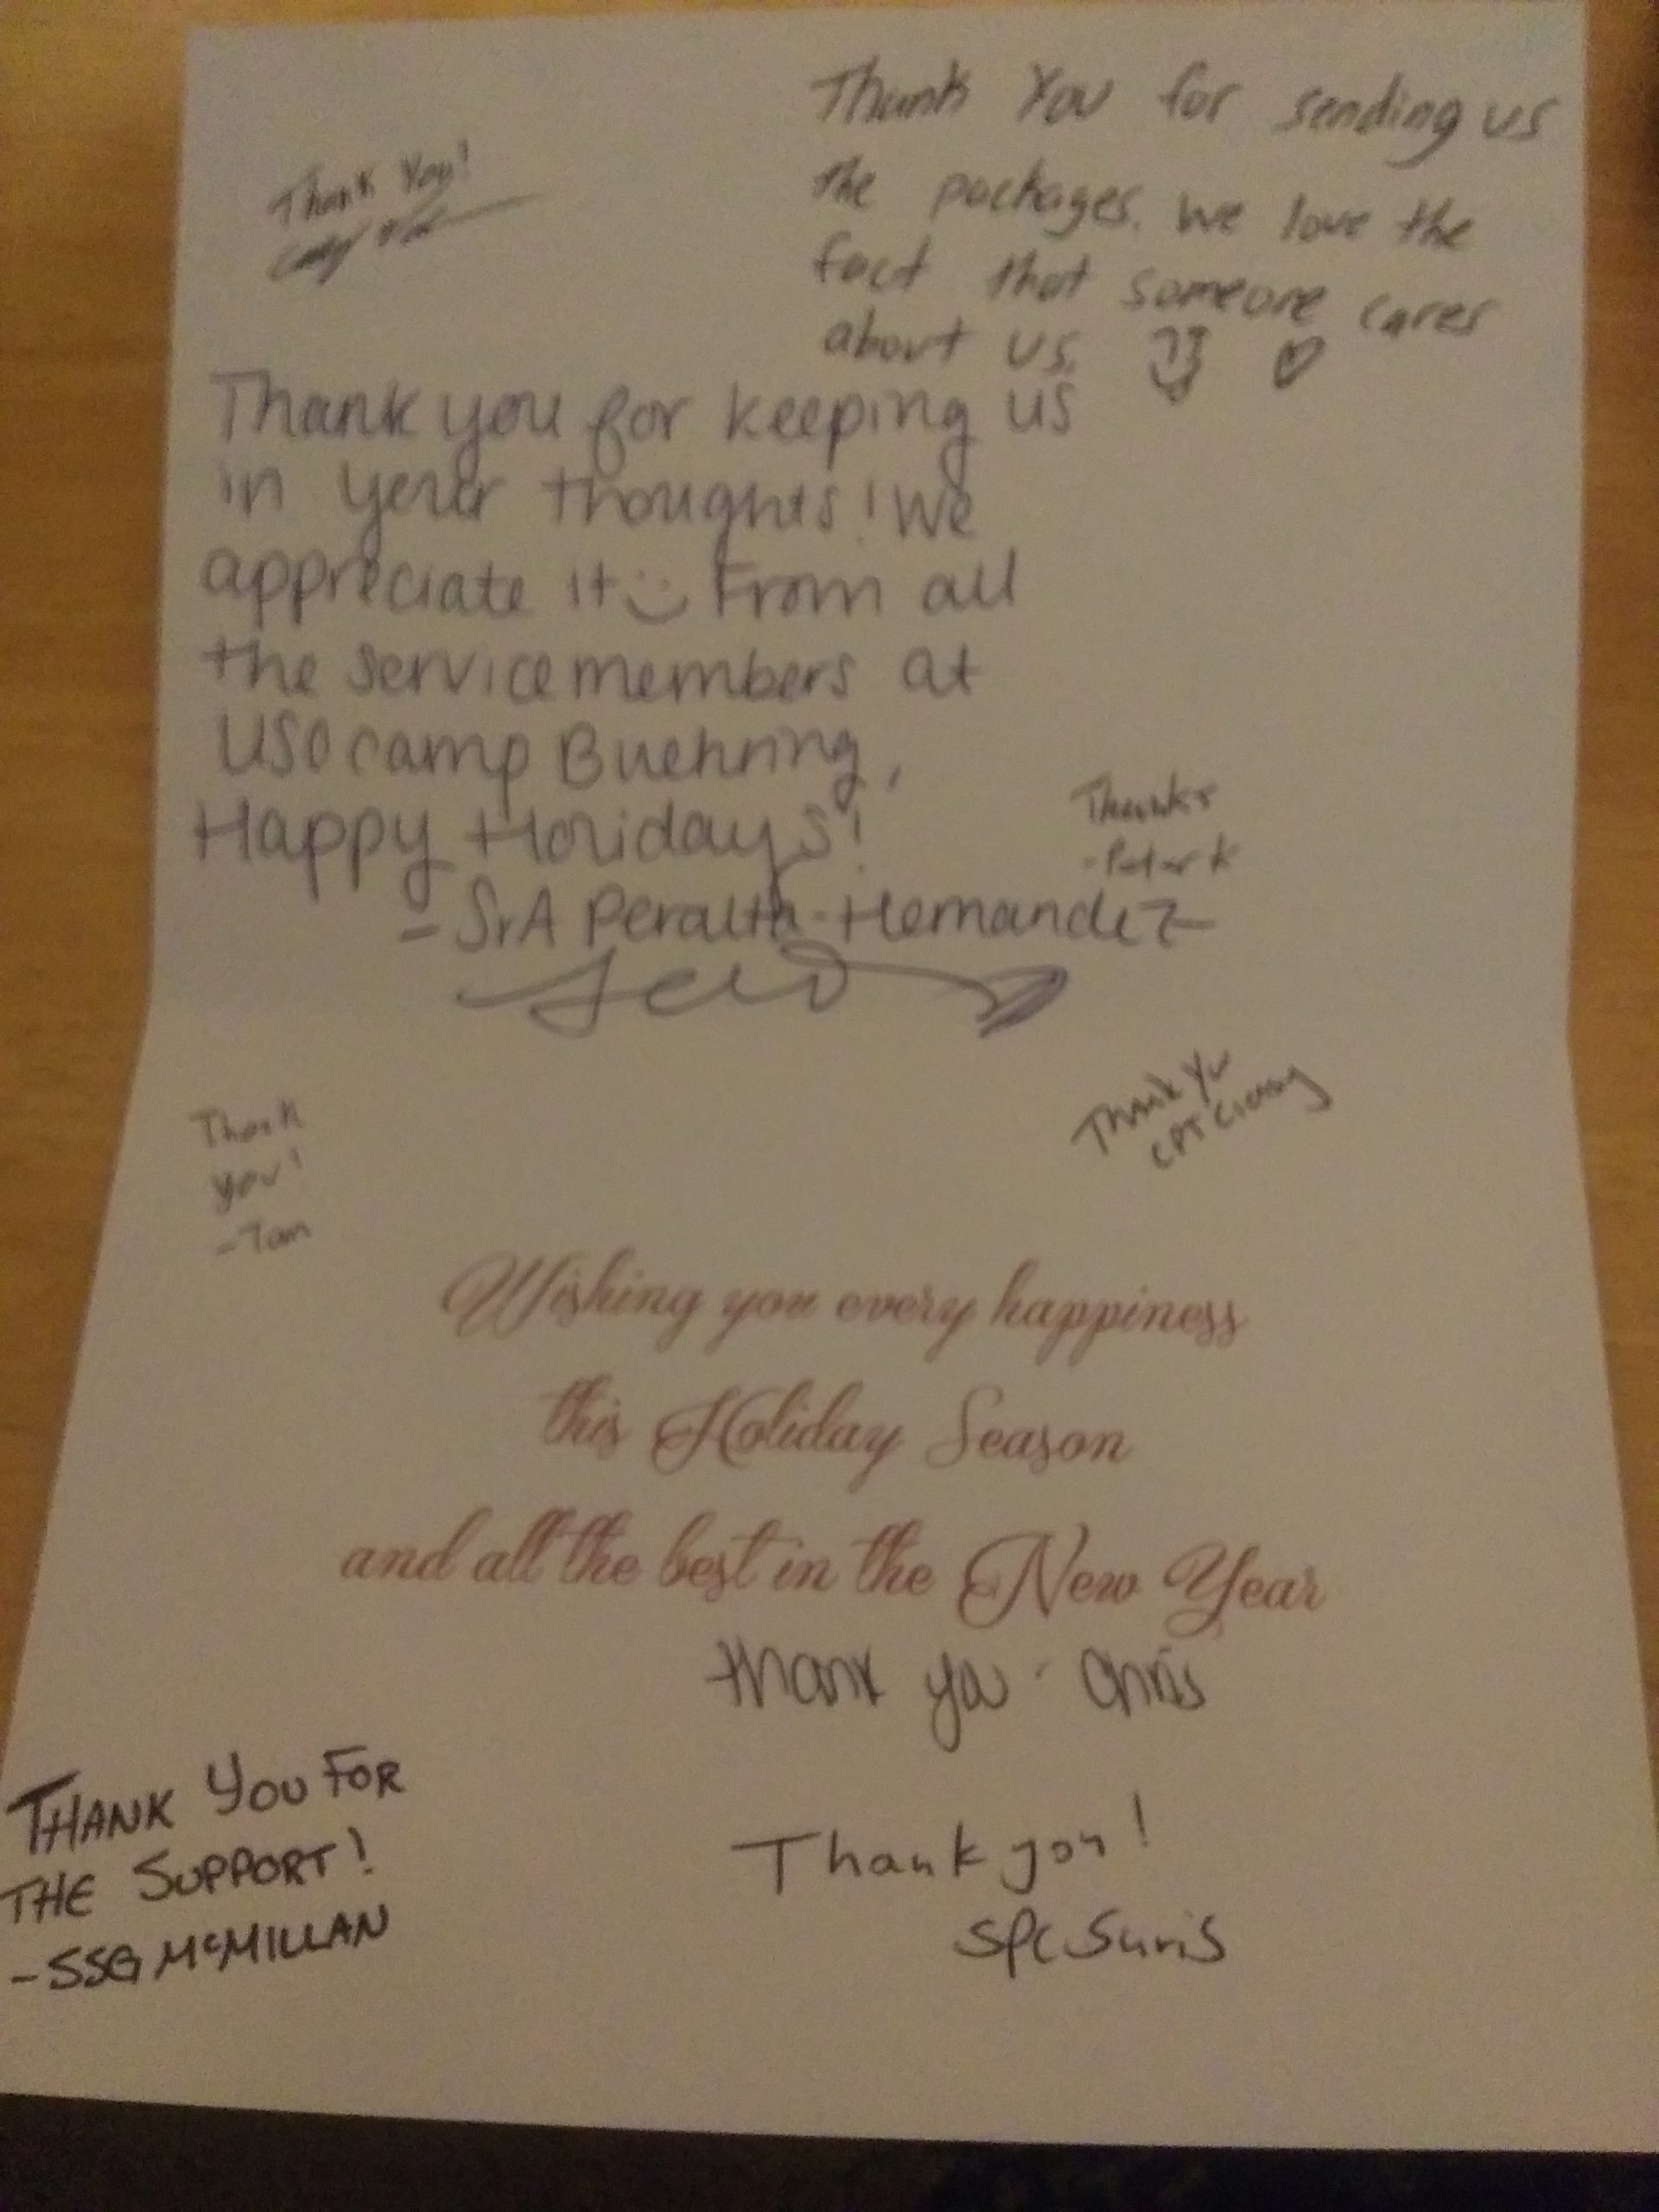 Thank You!
Thank You for sending us
the packages. We love the
fact that someone cares
about us.
Thank you for keeping us
in your thoughts! We
appreciate it From all
the service members at
USO camp Buehring,
Happy Holidays!
- SrA Peralta-Hernandez
Thanks
Thank
you!
- Tom
Thank You
CPT
Wishing you every happiness
this Holiday Season
and all the best in the New Year
Thank you - Chris
THANK YOU FOR
THE SUPPORT!
- SSG McMILLAN
Thank you!
SPC Suris